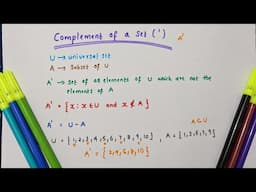 Complement of a Set (')
A'
U → universal set
A → Subset of U
A' → Set of all elements of U which are not the
elements of A
A' = { x : x ∈ U and x ∉ A }
A' = U - A
A ⊂ U
U = { 1, 2, 3, 4, 5, 6, 7, 8, 9, 10 } , A = { 1, 3, 5, 7, 9 }
A' = { 2, 4, 6, 8, 10 }